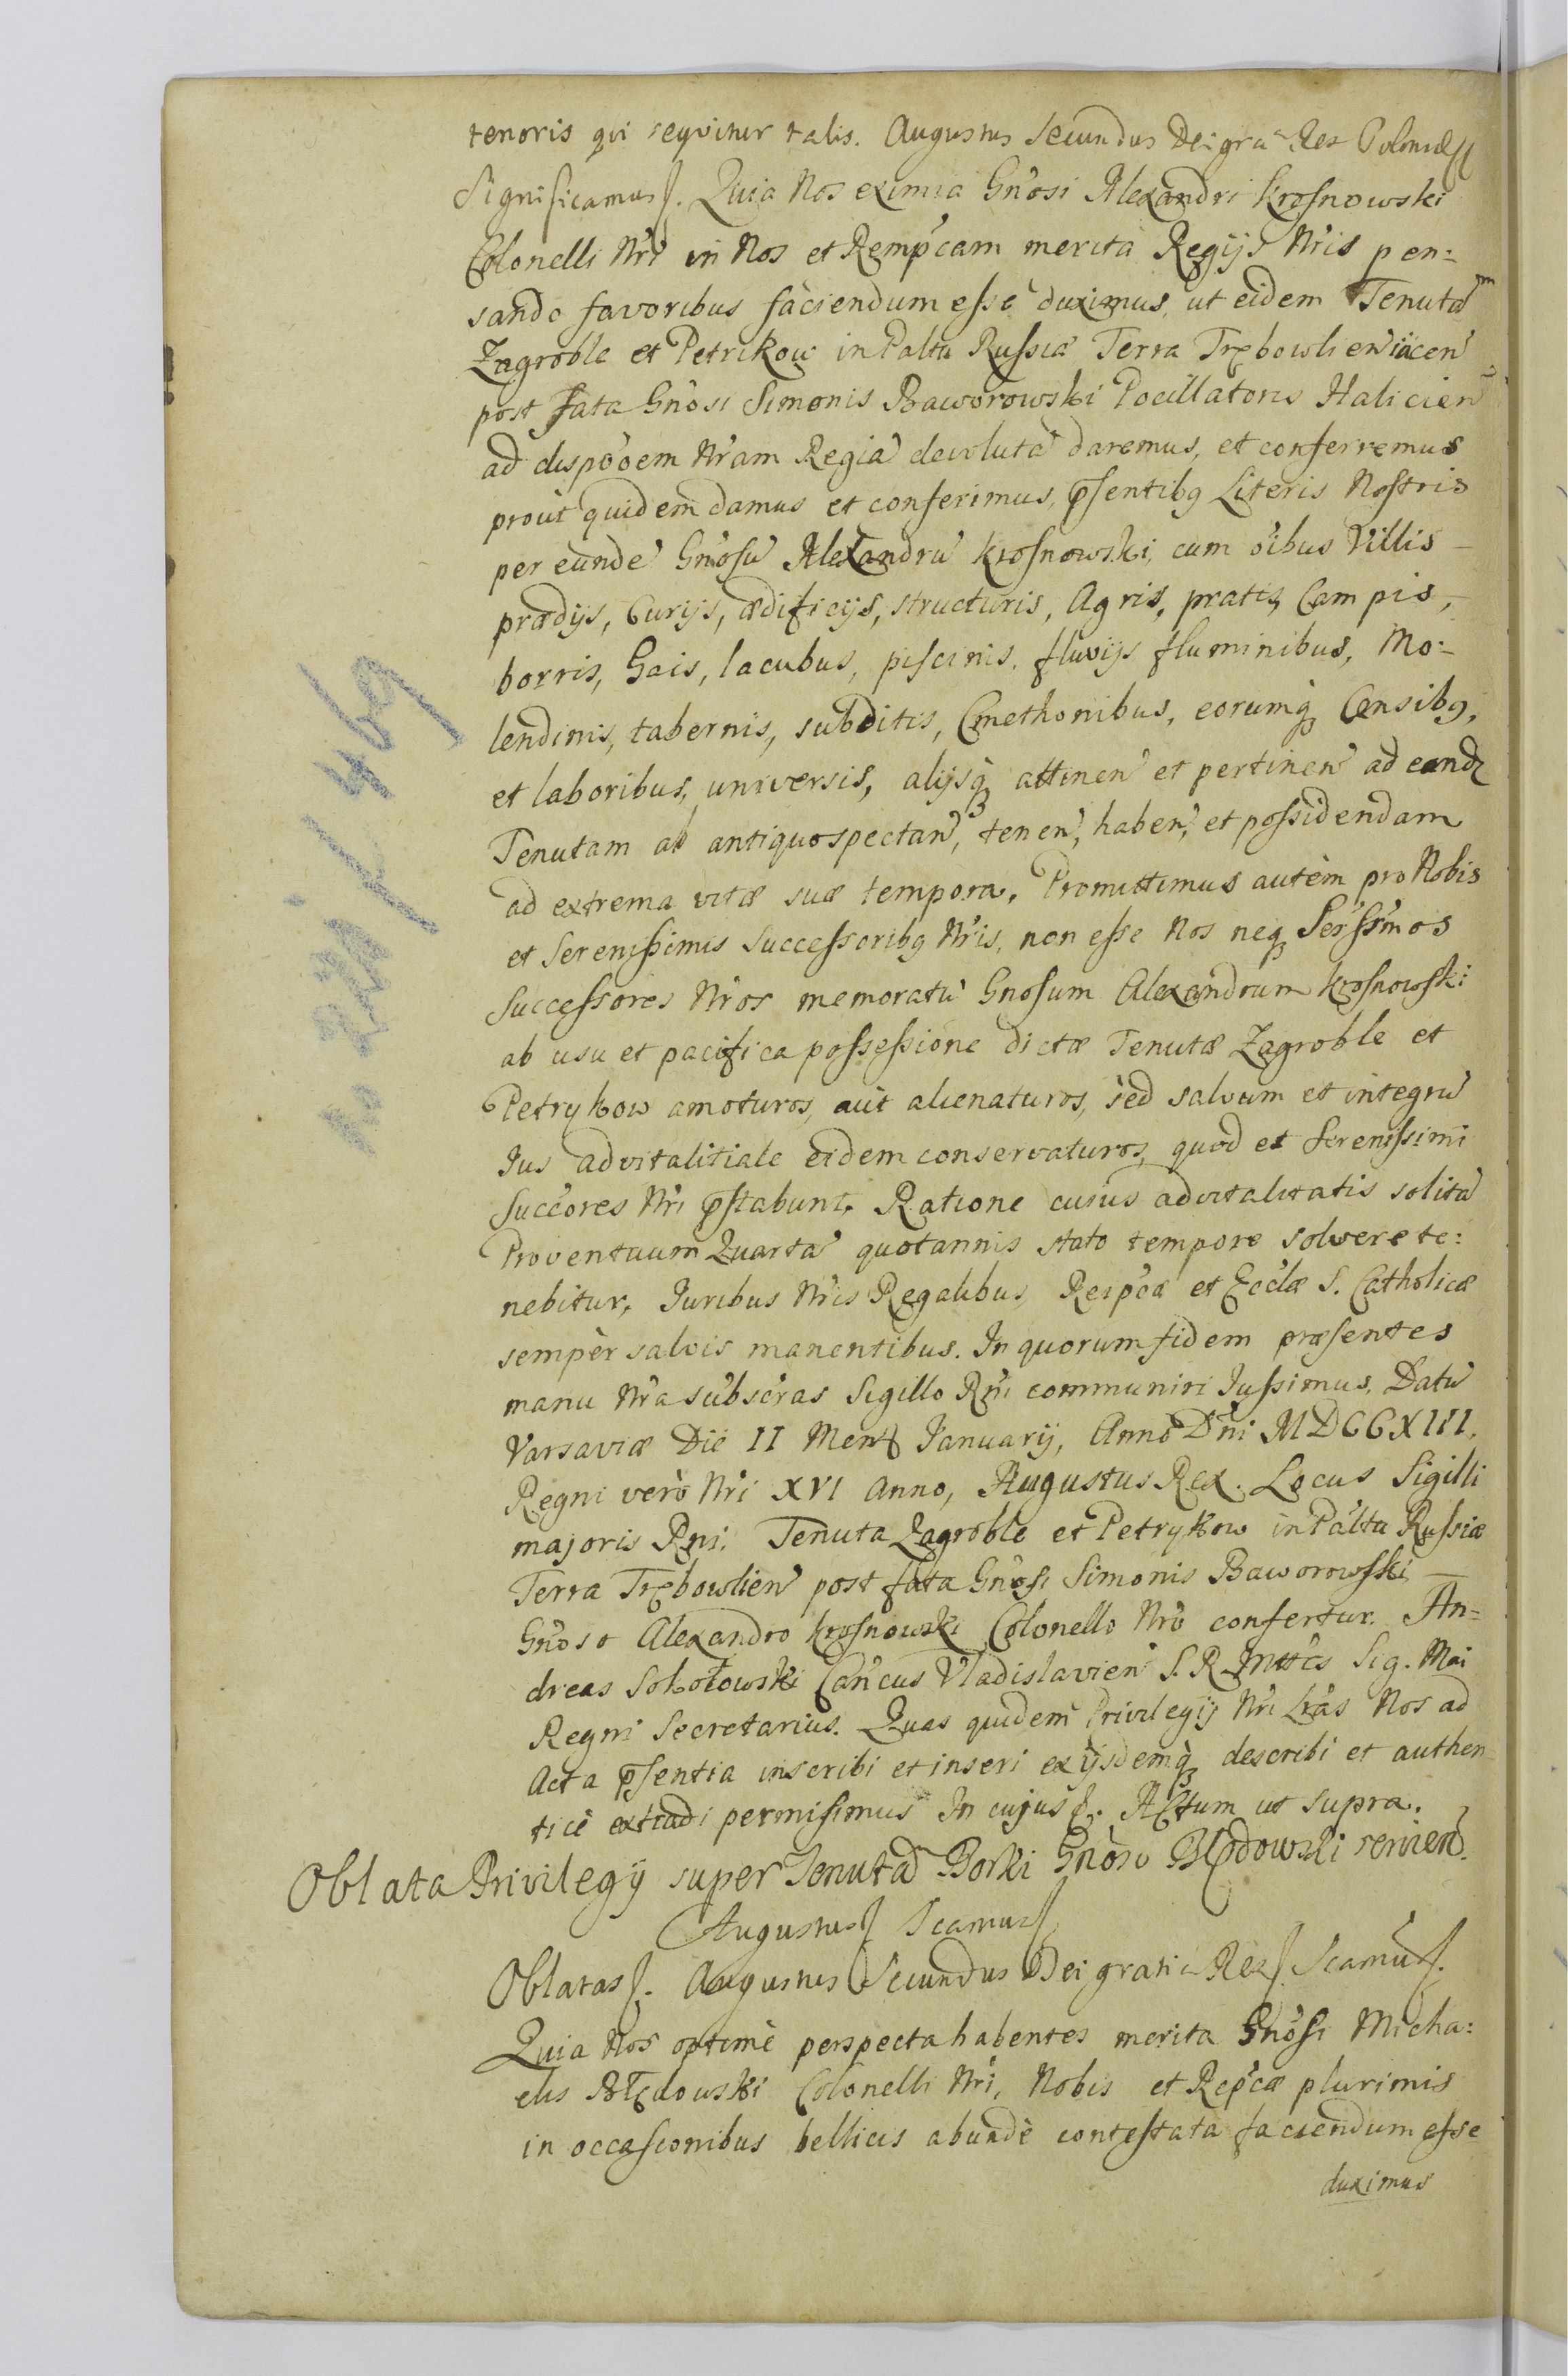 tenoris qvi seqvitur talis. Augustus Secundus Dei gra Rex Poloniæ
Significamus. Quia Nos eximia Gn'osi Alexandri Krosnowski
Colonelli Nr'i in Nos et Remp'cam merita Regijs Nr'is pen:
sando favoribus faciendum esse duximus, ut eidem Tenutam
Zagroble et Petrikow in Paltu Russiæ Terra Trębowlien' iacen'
post fata Gn'osi Simonis Baworowski Pocillatoris Halicien'
ad dispo'oem Nr'am Regia' devoluta' daremus, et conferremus
prout quidem damus et conferimus, p'sentibq Literis Nostris
per eunde' Gn'osu' Alexandru' Krosnowski, cum o'ibus Villis
prædijs, Curijs, ædificijs, structuris, Agris, pratis, Campis,
borris, Gais, lacubus, piscinis, fluvijs fluminibus, Mo:
lendinis, tabernis, subditis, Cmethonibus, eorumq Censibq,
et laboribus, universis, alijsq attinen' et pertinen' ad eandz
Tenutam ab antiquo spectan', tenen', haben', et possidendam
ad extrema vitæ suæ tempora. Promittimus autem pro Nobis
et Serenissimis Successoribq Nr'is, non esse Nos neq Ser'ss'mos
Successores Nr'os memoratu' Gnosum Alexandrum Krosnowski
ab usu et pacifica possessione dictæ Tenutæ Zagroble et
Petrykow amoturos, aut alienaturos, sed salvum et integru'
Jus advitalitiale eidem conservaturos, quod et Serenissimi
Succ'ores Nr'i p'stabunt. Ratione cuius advitalitatis solita'
Proventuum Quarta' quotannis stato tempore solvere te:
nebitur, Juribus Nr'is Regalibus, Reip'cæ et Eccl'æ S. Catholicæ
semper salvis manentibus. In quorum fidem præsentes
manu Nr'a subscr'as Sigillo Rn'i communiri Jussimus. Datu'
Varsaviæ Die II Mens Januarij, Anno D'ni MDCCXIII.
Regni verò Nr'i XVI Anno, Augustus Rex. Locus Sigilli
majoris Rni. Tenuta Zagroble et Petrykow in Pal'tu Russiæ
Terra Trębowlien' post fata Gn'osi Simonis Baworowski
Gn'oso Alexandro Krosnowski Colonello Nr'o confertur. An=
dreas Sokołowski Can'cus Vladislavien' S. R. Mtt'is Sig. Mai
Regni Secretarius. Quas quidem Privilegij Nr'i Lr'as Nos ad
Acta p'sentia inscribi et inseri ex ijsdemq describi et authen
ticè extradi permisimus In cujus. Actum ut supra.
Oblata Privilegij super Tenuta' Borki Gnoso Błędowski servien'.
Augustus Scamus
Oblatas. Augustus Secundus Dei gratia Rex Scamus.
Quia Nos optimè perspecta habentes merita Gn'osi Micha:
elis Błędowski Colonelli Nr'i, Nobis et Reip'cæ plurimis
in occasionibus bellicis abundè contestata faciendum esse
duximus